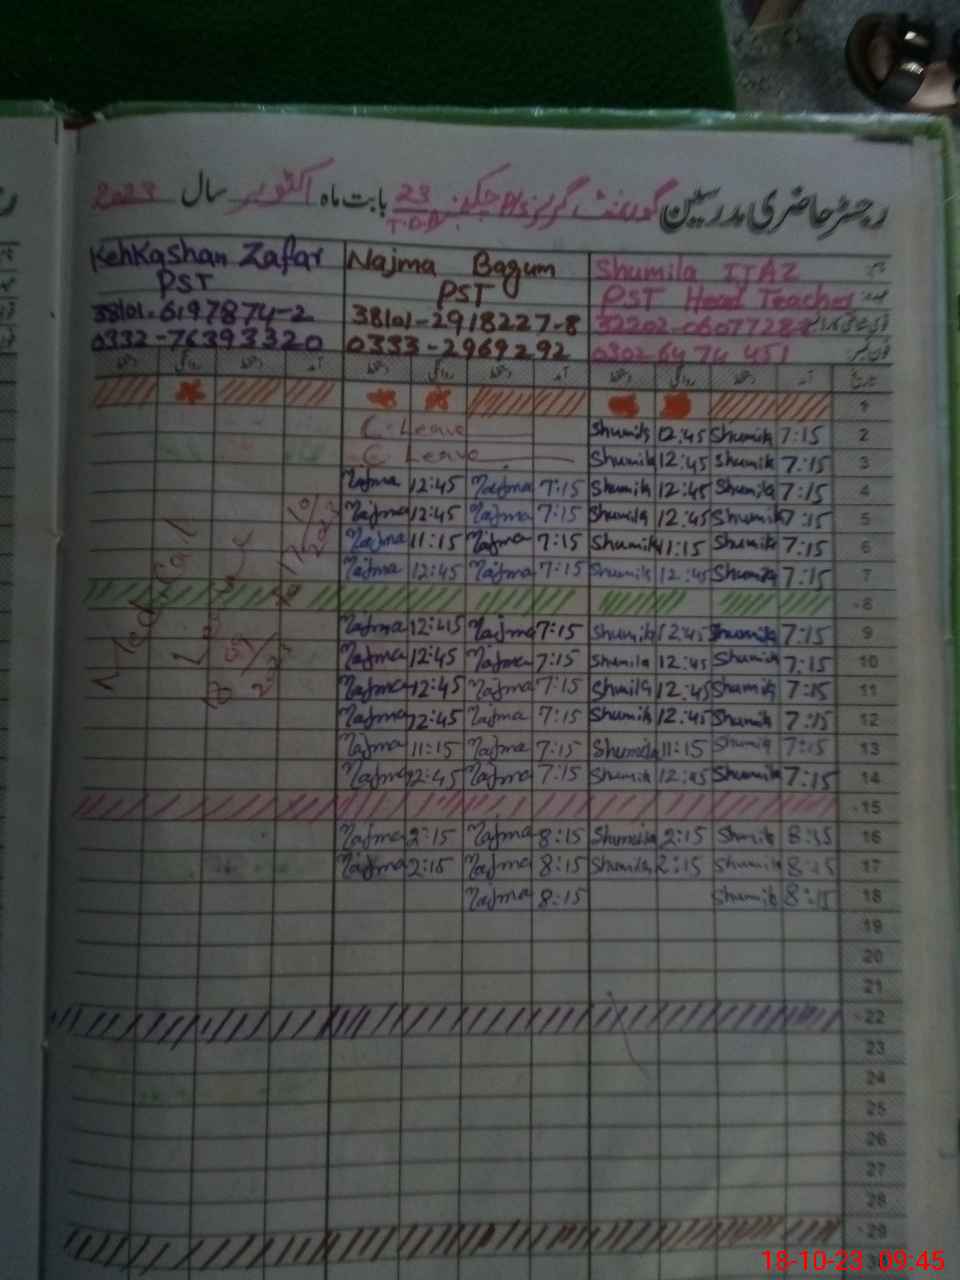 رجسٹر حاضری مدرسین گورنمنٹ گرلز P/S چک نمبر 23 بابت ماہ اکتوبر سال 2023
T.D.A
KehKashan Zafar Najma Bagum Shumila IJAZ
PST PST PST Head Teacher
38101-6197874-2 38101-2918227-8
0332-7639332 0 0333-2969292 0302 64 74 451
1
C. Leave Shumila 12:45 Shumila 7:15 2
C. Leave Shumila 12:45 Shumila 7:15 3
Najma 12:45 Najma 7:15 Shumila 12:45 Shumila 7:15 4
Najma 12:45 Najma 7:15 Shumila 12:45 Shumila 7:15 5
Najma 11:15 Najma 7:15 Shumila 11:15 Shumila 7:15 6
Najma 12:45 Najma 7:15 Shumila 12:45 Shumila 7:15 7
8
Najma 12:45 Najma 7:15 Shumila 12:45 Shumila 7:15 9
Najma 12:45 Najma 7:15 Shumila 12:45 Shumila 7:15 10
Najma 12:45 Najma 7:15 Shumila 12:45 Shumila 7:15 11
Najma 12:45 Najma 7:15 Shumila 12:45 Shumila 7:15 12
Najma 11:15 Najma 7:15 Shumila 11:15 Shumila 7:15 13
Najma 12:45 Najma 7:15 Shumila 12:45 Shumila 7:15 14
15
Najma 2:15 Najma 8:15 Shumila 2:15 Shumila 8:15 16
Najma 2:15 Najma 8:15 Shumila 2:15 Shumila 8:15 17
Najma 8:15 Shumila 8:15 18
19
20
21
22
23
24
25
26
27
28
29
30
Medical
Leave
18-10-23 09:45